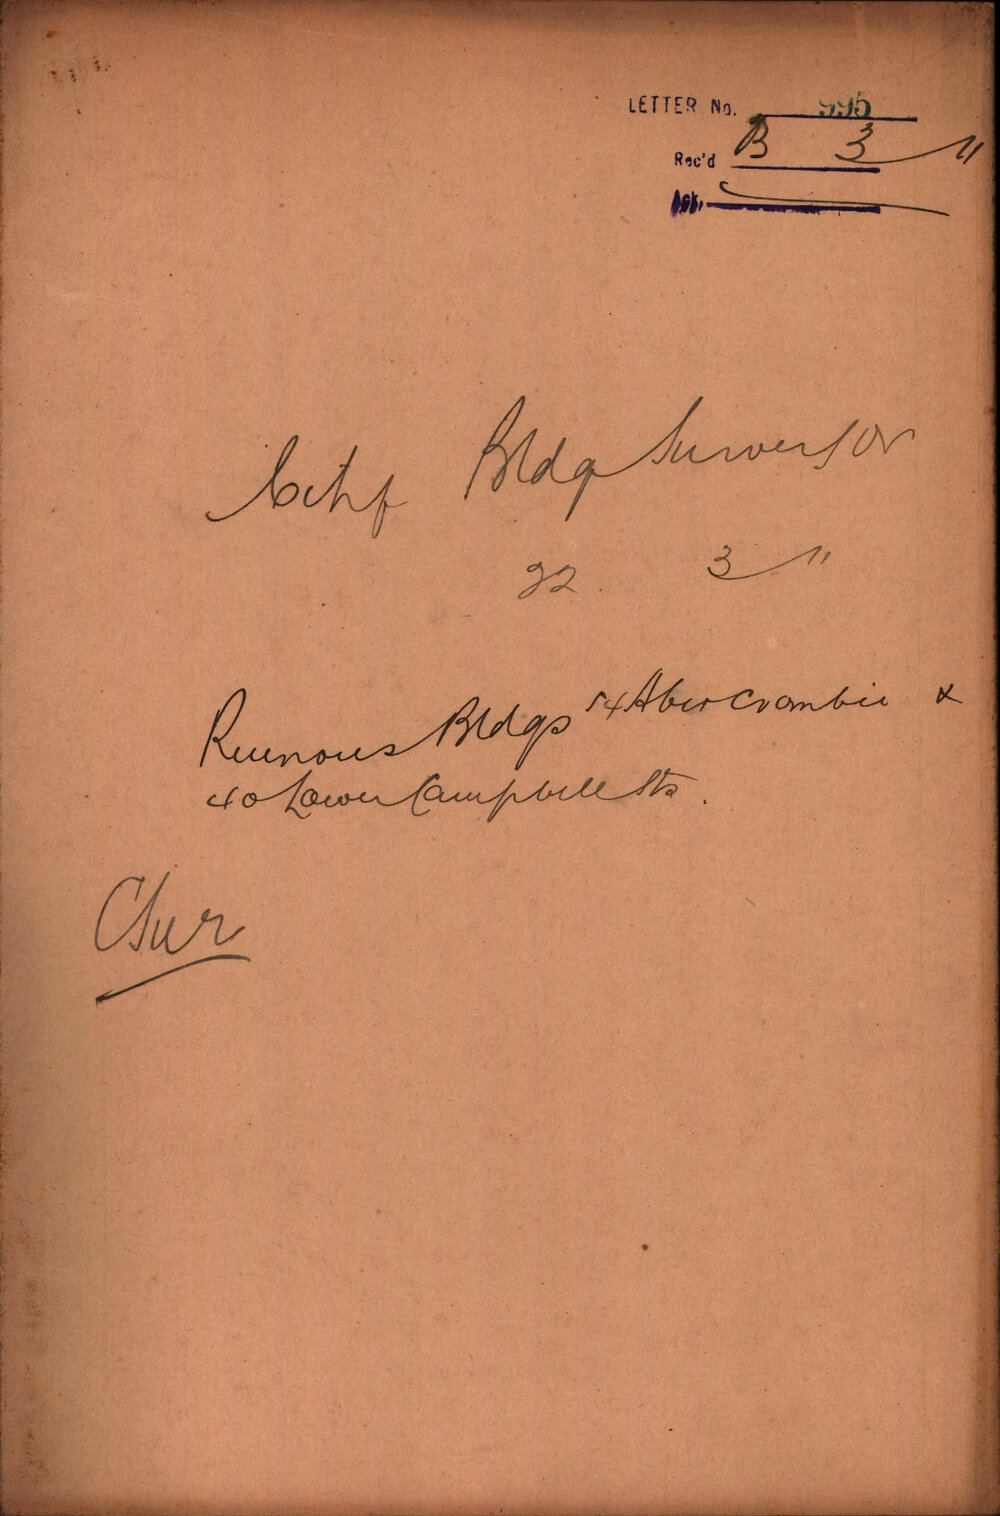 LETTER No. 995
Rec'd B 3 11
Ack.
City Bldg Surveyor
22 3 11
Ruinous Bldgs 54 Abercrombie &
40 Lower Campbell Sts.
CSur